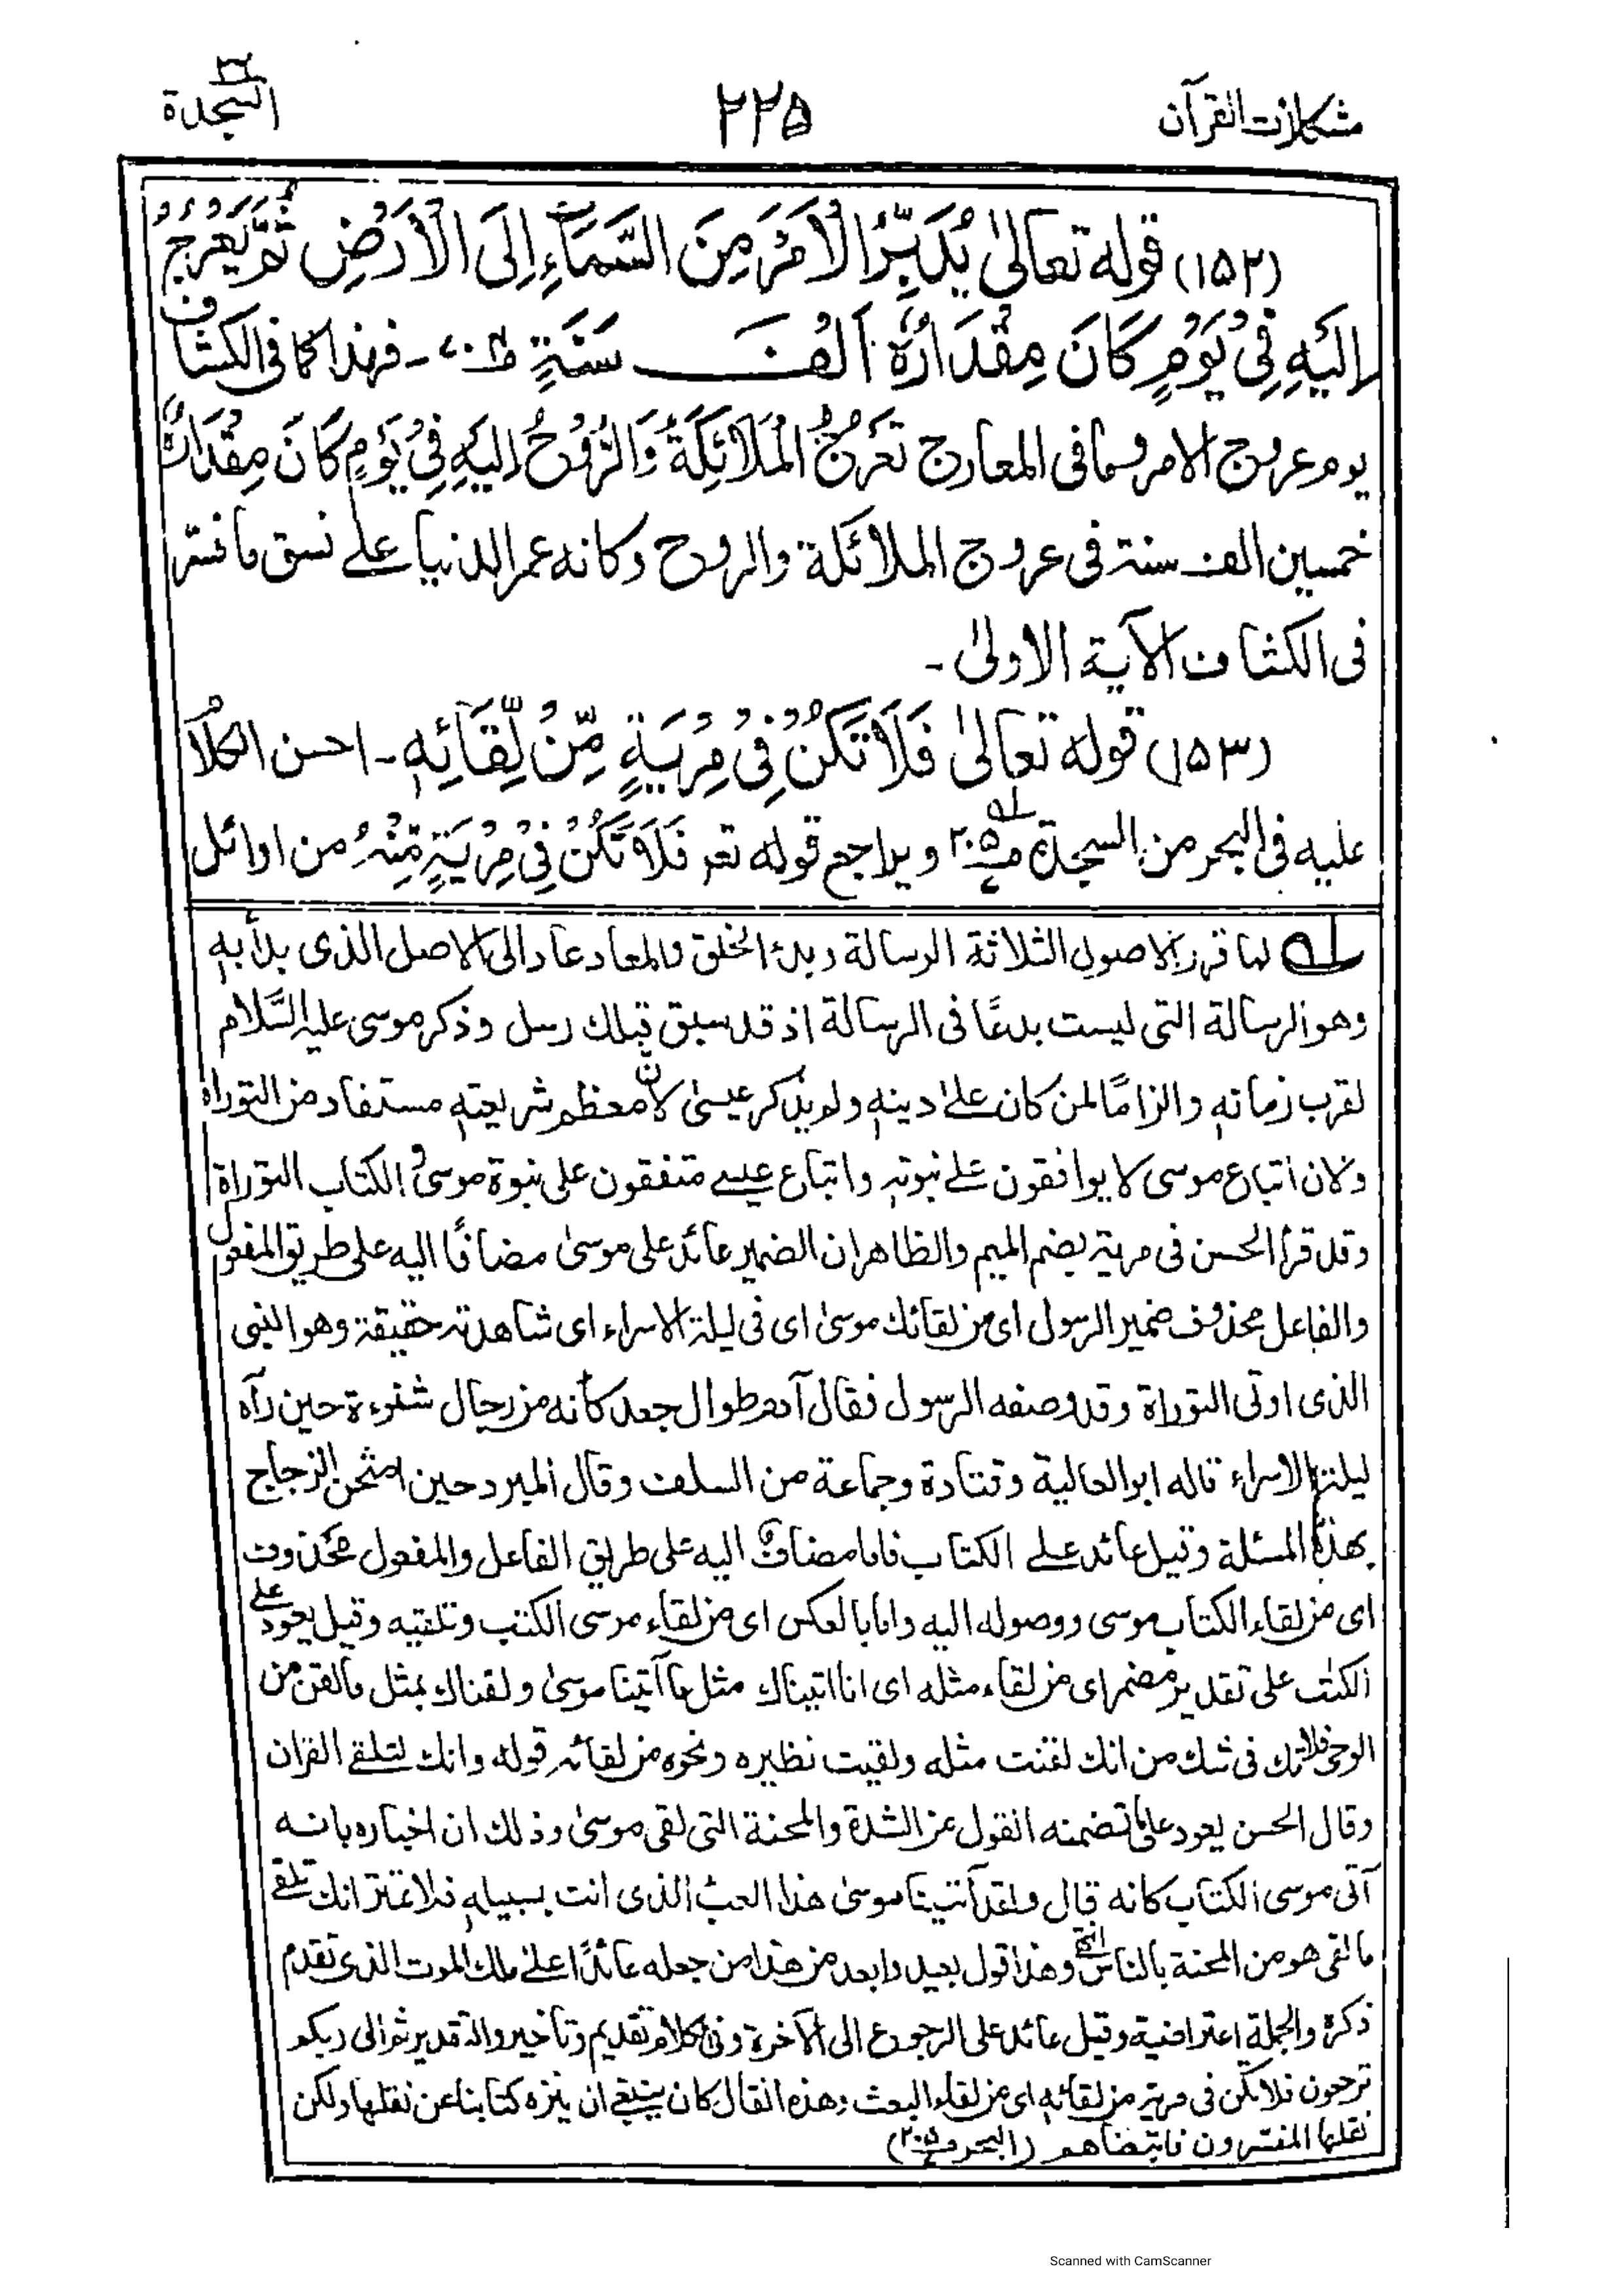 مشكلات القرآن
٢٢٥
السجدة
٣٢
(١٥٢) قوله تعالىٰ يُدَبِّرُ الْاَمْرَ مِنَ السَّمَآءِ اِلَى الْاَرْضِ ثُمَّ يَعْرُجُ
اِلَيْهِ فِيْ يَوْمٍ كَانَ مِقْدَارُهٗ اَلْفَ سَنَةٍ ـ فهذا كما فى الكشاف
يوم عروج الامر وما فى المعارج تَعْرُجُ الْمَلَائِكَةُ وَالرُّوْحُ اِلَيْهِ فِيْ يَوْمٍ كَانَ مِقْدَارُهٗ
خمسين الف سنة فى عروج الملائكة والروح وكانه عمر الدنيا على نسق ما فسّر
فى الكشاف الآية الاولىٰ ـ
(١٥٣) قوله تعالىٰ فَلَا تَكُنْ فِيْ مِرْيَةٍ مِّنْ لِّقَآئِهٖ ـ احسن الكلام
عليه فى البحر من السجدة ص٢٠٥ ويراجع قوله تعر فَلَا تَكُنْ فِيْ مِرْيَةٍ مِّنْهُ من اوائل
له لما قرر الاصول الثلاثة الرسالة وبدء الخلق والمعاد عاد الى الاصل الذى بدأ به
وهو الرسالة التى ليست بدعًا فى الرسالة اذ قد سبق قبلك رسل وذكر موسى عليه السّلام
لقرب زمانه والزامًا لمن كان على دينه ولم يذكر عيسىٰ لان معظم شريعته مستفاد من التوراة
ولان اتباع موسى لا يوافقون على نبوته واتباع عيسى متفقون على نبوة موسىٰ و الكتاب التوراة
وقد قرأ الحسن فى مرية بضم الميم والظاهر ان الضمير عائد على موسىٰ مضافًا اليه على طريق المفعول
والفاعل محذوف ضمير الرسول اى من لقائك موسىٰ اى فى ليلة الاسراء اى شاهدته حقيقة وهو النبى
الذى اوتى التوراة وقد وصفه الرسول فقال آدم طوال جعد كأنه من رجال شنوءة حين رآه
ليلة الاسراء قاله ابو العالية وقتادة وجماعة من السلف وقال المبرد حين امتحن الزجاج
بهذه المسئلة وقيل عائد على الكتاب فاما مضاف اليه على طريق الفاعل والمفعول محذوف
اى من لقاء الكتاب موسى ووصوله اليه واما بالعكس اى من لقاء موسى الكتب وتلقيه وقيل يعود على
الكتٰب على تقدير مضمر اى من لقاء مثله اى انا اتيناك مثل ما آتينا موسىٰ ولقناك بمثل ما لقن من
الوحى فلا تك فى شك من انك لقنت مثله ولقيت نظيره ونحوه من لقائه قوله وانك لتلقى القران
وقال الحسن يعود على ما تضمنه القول عن الشدة والمحنة التى لقى موسىٰ وذلك ان اخباره بانه
آتى موسى الكتاب كانه قال ولقد آتينا موسىٰ هذا العبء الذى انت بسبيله فلا تمتر انك تلقى
ما لقى هو من المحنة بالناس انتهى وهذا قول بعيد وابعد من هذا من جعله عائدًا على ملك الموت الذى تقدم
ذكرهٗ والجملة اعتراضية وقيل عائد على الرجوع الى الآخرة وفى الكلام تقديم وتأخير والتقدير ثم الى ربكم
ترجعون فلا تكن فى مرية من لقائه اى من لقاء البعث وهذه انقال كان ينبغى ان ينزه كتابنا عن نقلها ولكن
نقلها المفسّرون فاتبعناهم (البحر ص٢٠٥)
Scanned with CamScanner